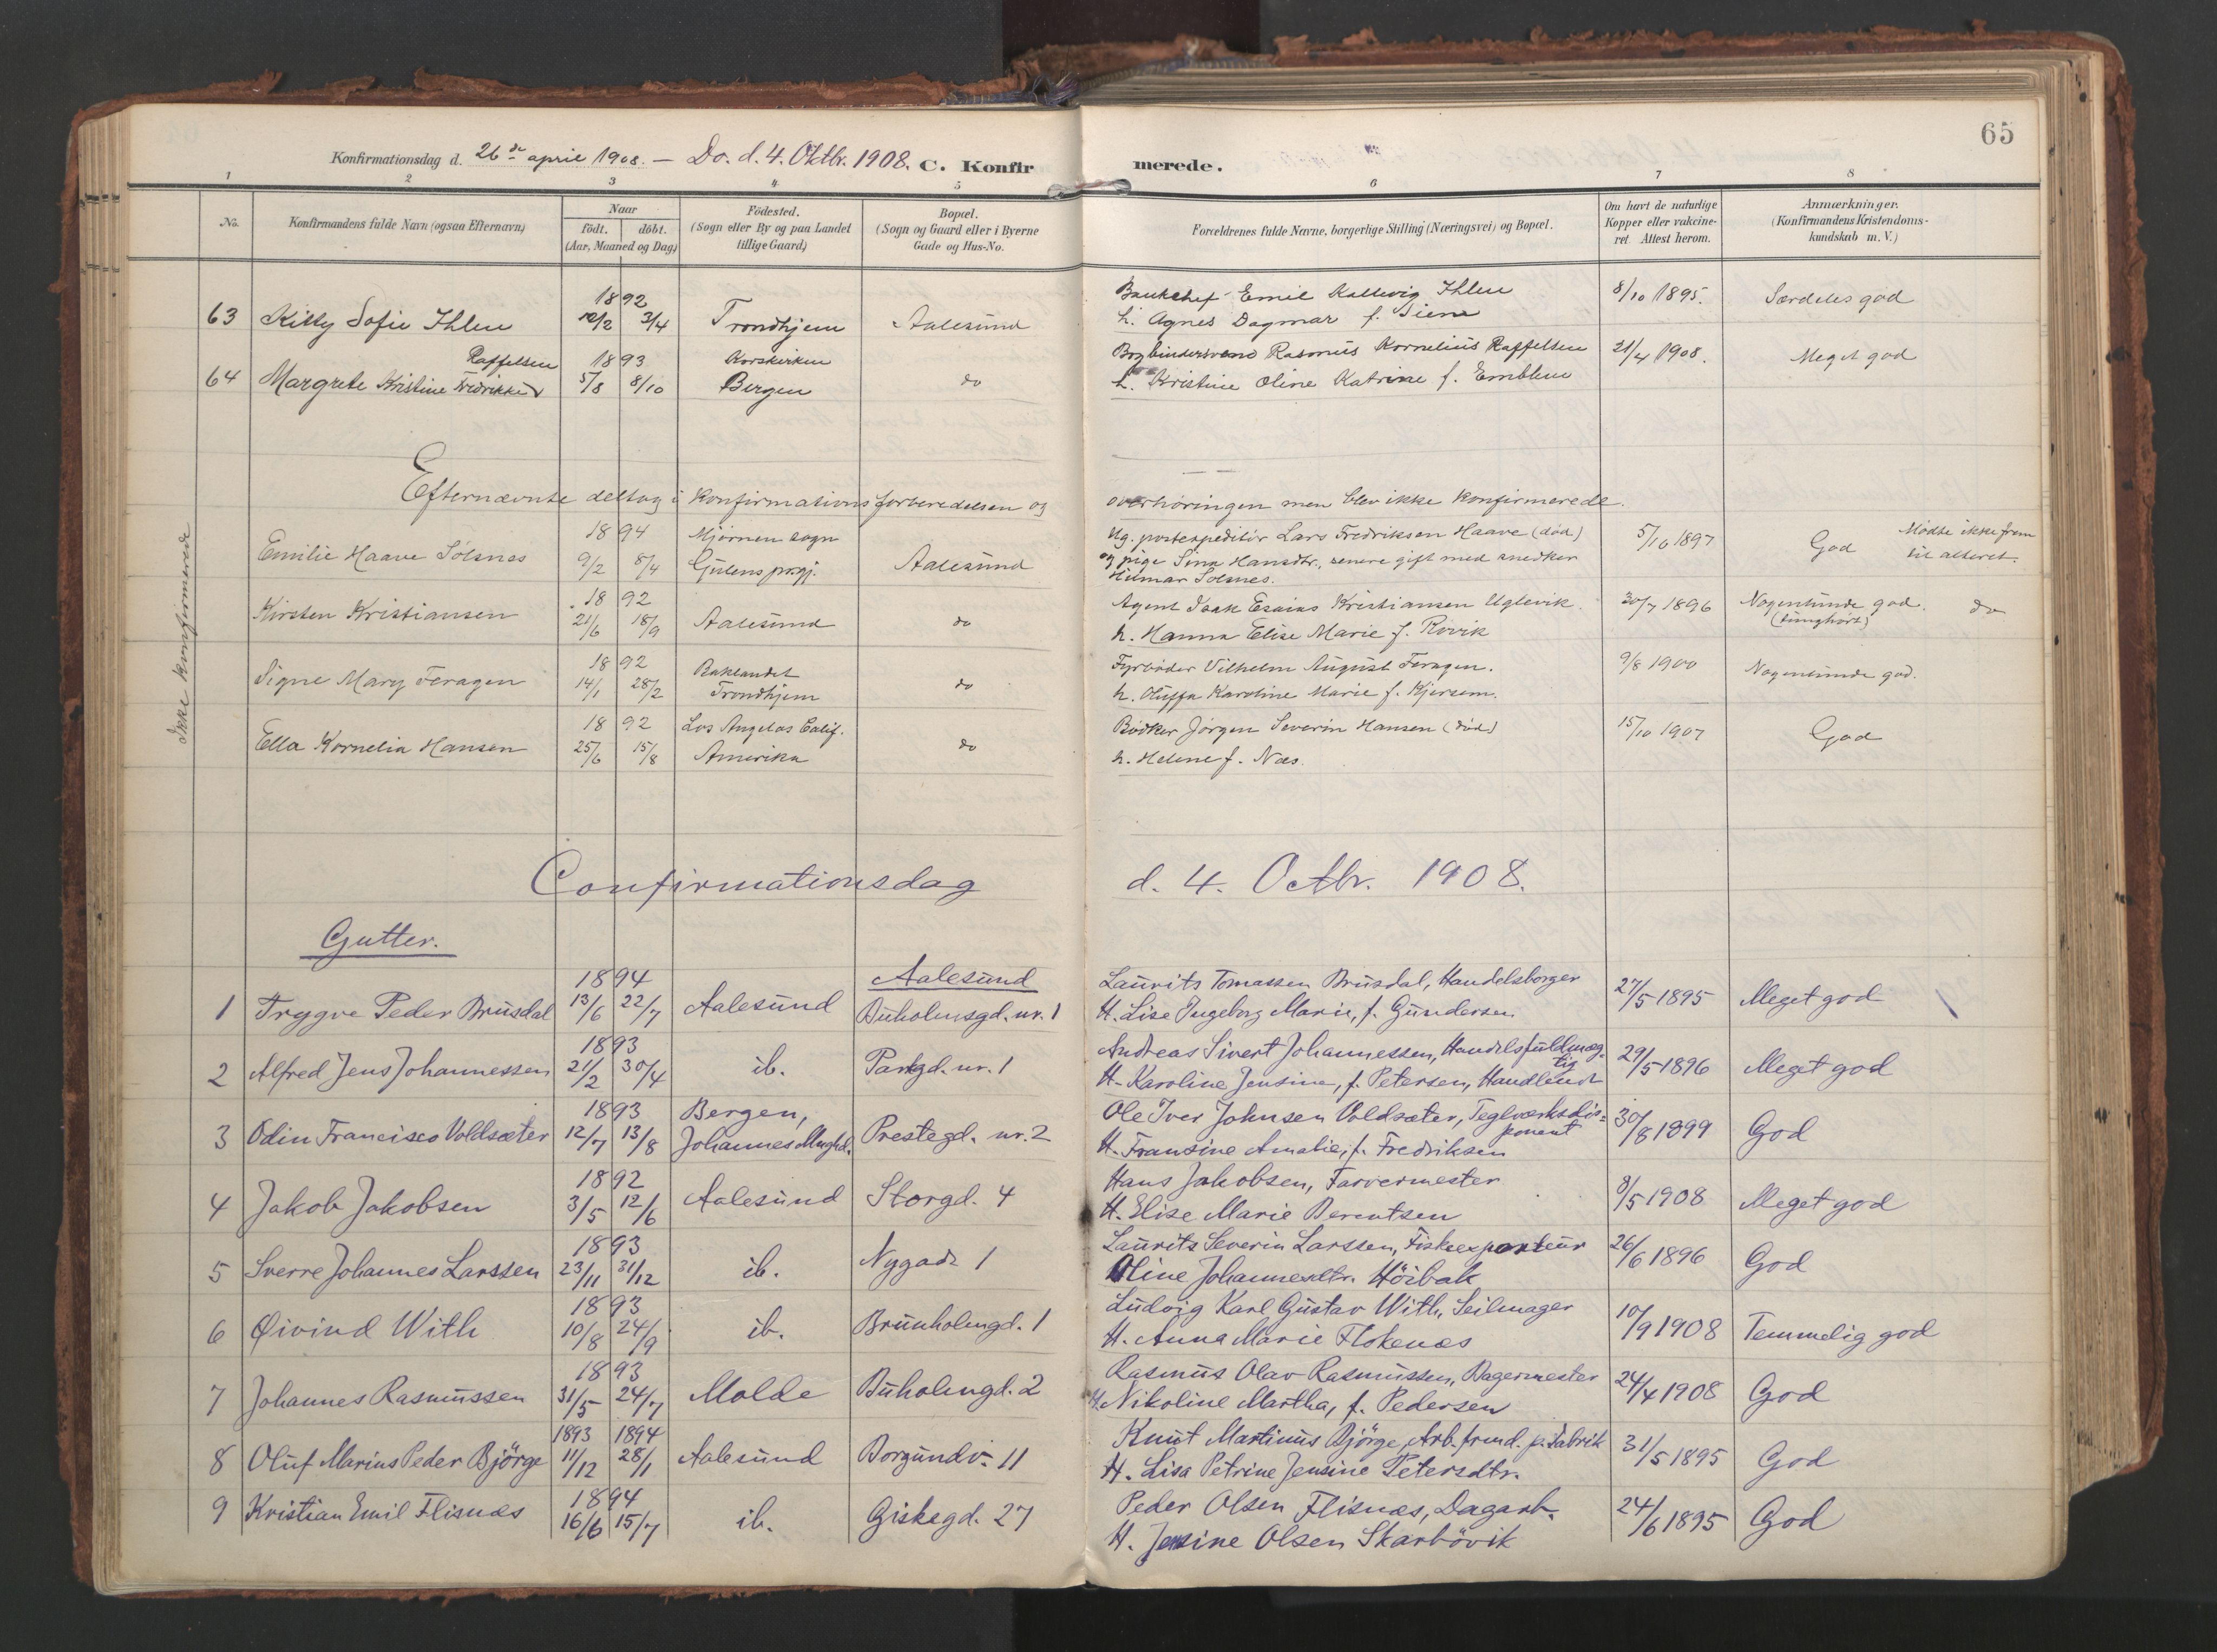 65
Konfirmationsdag d. 26de april 1908. — Do. d. 4. Oktbr. 1908. C. Konfirmerede.
1 2 3 4 5 6 7 8
No. Konfirmandens fulde Navn (ogsaa Efternavn) Naar födt. döbt. (Aar, Maaned og Dag) Födested. (Sogn eller By og paa Landet tillige Gaard) Bopæl. (Sogn og Gaard eller i Byerne Gade og Hus-No. Forældrenes fulde Navne, borgerlige Stilling (Næringsvei) og Bopæl. Om havt de naturlige Kopper eller vakcineret. Attest herom. Anmærkninger. (Konfirmandens Kristendomskundskab m. V.)
1892 Bankchef Emil Kallevig Ihlen 8/10 1895. Særdeles god
63 Kitty Sofie Ihlen 12/2 3/4 Trondhjem Aalesund h. Agnes Dagmar f.
Raffelsen 1893 Korskirken Bogbindersvend Rasmus Kornelius Raffelsen 21/4 1908. Meget god
64 Margrete Kristine Fredrikke 5/8 8/10 Bergen do h. Kristine Oline Katrine f. Emblem
Efternævnte deltog i konfirmationsforberedelsen og overhøringen men blev ikke konfirmerede.
Ikke konfirmerede
1894 Mjømen sogn Ug. postexpeditør Lars Fredriksen Haave (død) 5/10 1897 God Mødte ikke frem
Emilie Haave Solsnes 9/2 8/4 Gulens prgj. Aalesund og pige Sina Hansdtr., senere gift med snedker til alteret.
Hilmar Solsnes.
1892 Agent Isak Esaias Kristiansen Uglevik. 30/7 1896 Nogenlunde god. do
Kirsten Kristiansen 21/6 18/9 Aalesund do h. Hanna Elise Marie f. Rovik (tunghørt)
1892 Baklandet Fyrbøder Vilhelm August Feragen. 9/8 1900 Nogenlunde god.
Signe Mary Feragen 14/1 28/2 Trondhjem do h. Oluffa Karoline Marie f. Kjersem.
1892 Los Angelos Calif. Bødker Jørgen Severin Hansen (død) 15/10 1907 God
Ella Kornelia Hansen 25/6 15/8 Amerika do h. Helene f. Næs.
Confirmationsdag d. 4. Octbr. 1908.
Gutter.
1894 Aalesund Laurits Tomassen Brusdal, Handelsborger 27/5 1895 Meget god
1 Trygve Peder Brusdal 13/6 22/7 Aalesund Buholmsgd. nr. 1 H. Lise Ingeborg Marie, f. Gundersen
1893 Andreas Sivert Johannessen, Handelsfuldmægtig 29/5 1896 Meget god
2 Alfred Jens Johannessen 21/2 30/4 ib. Parkgd. nr. 1 H. Karoline Jensine, f. Petersen,
1893 Bergen, Ole Iver Johnsen Voldsæter, Teglværksdisponent 30/8 1899 God
3 Odin Francisco Voldsæter 12/7 13/8 Johannes Mnghd. Prestegd. nr. 2 H. Fransine Amalie, f. Fredriksen
1892 Hans Jakobsen, Farvermester 8/5 1908 Meget god
4 Jakob Jakobsen 3/5 12/6 Aalesund Storgd. 4 H. Elise Marie Berentsen
1893 Laurits Severin Larssen, Fiskeexporteur 26/6 1896 God
5 Sverre Johannes Larssen 23/11 31/12 ib. Nygade 1 Oline Johannesdtr. Höibak
1893 Ludvig Karl Gustav With, Seilmager 10/9 1908 Temmelig god
6 Øivind With 10/8 24/9 ib. Brunholmgd. 1 H. Anna Marie Flokenæs
1893 Rasmus Olav Rasmussen, Bagermester 24/4 1908 God
7 Johannes Rasmussen 31/5 24/7 Molde Buholmgd. 2 H. Nikoline Martha, f. Pedersen
1893 1894 Knut Martinus Björge, Arb.frmd. p. Fabrik 31/5 1895 God
8 Oluf Marius Peder Björge 11/12 28/1 Aalesund Borgundv. 11 H. Lisa Petrine Jensine Petersdtr.
1894 Peder Olsen Flisnæs, Dagarb. 24/6 1895 God
9 Kristian Emil Flisnæs 16/6 15/7 ib. Giskegd. 27 H. Jensine Olsen Skarbövik